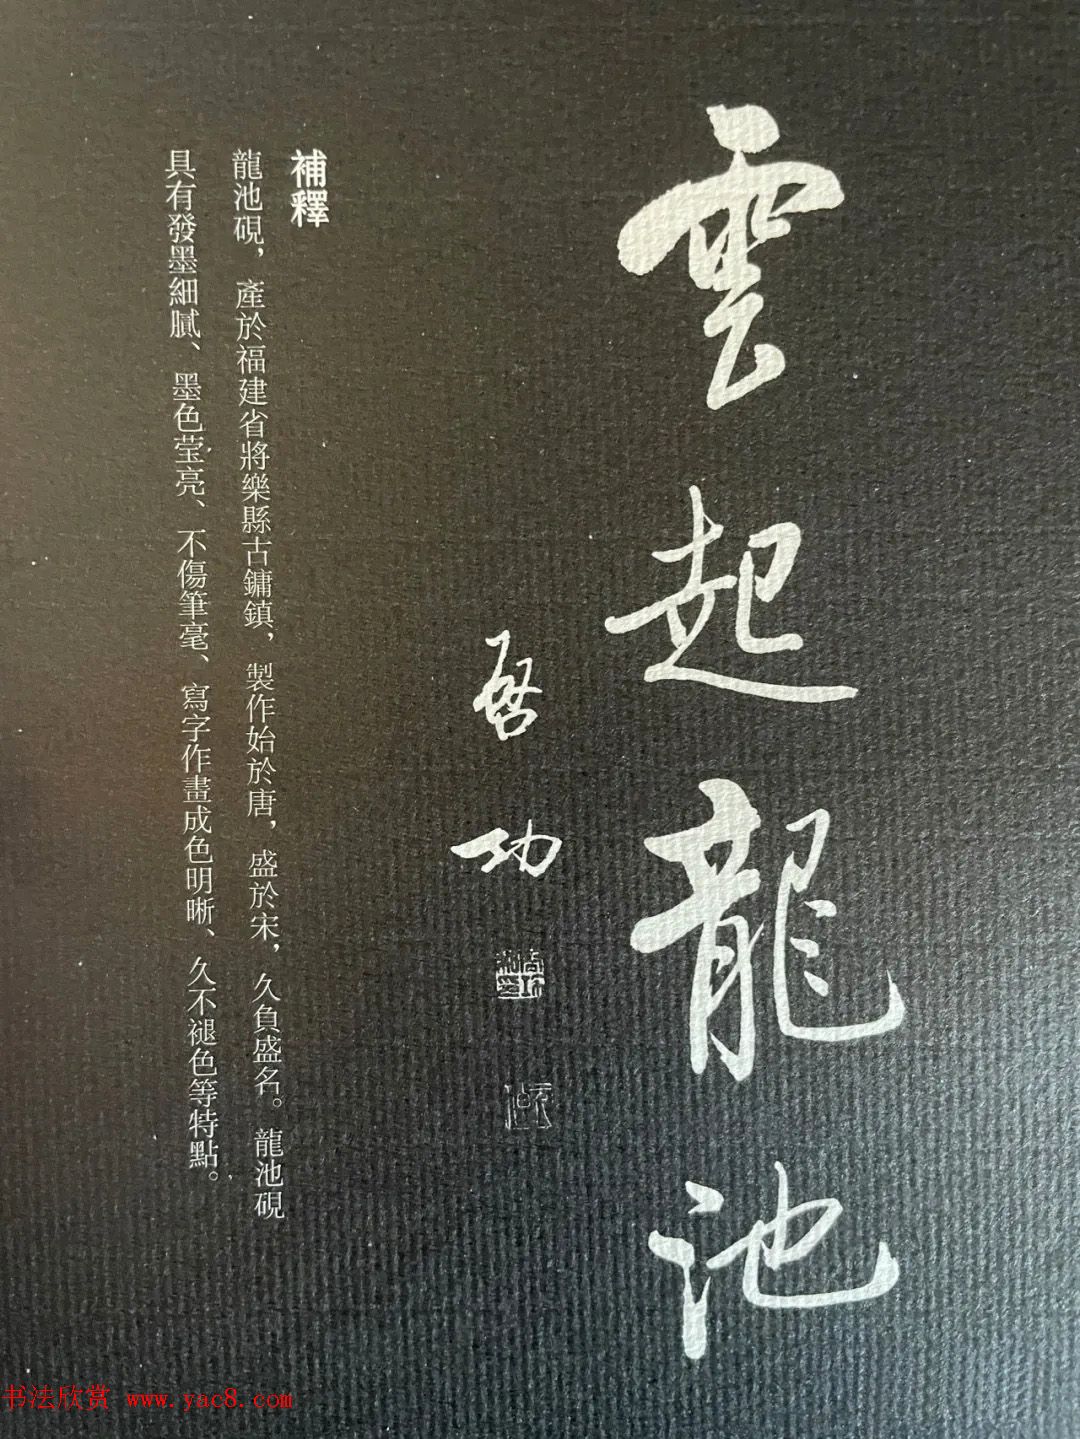 雲起龍池
啓功
補釋
龍池硯，產於福建省將樂縣古鏞鎮，製作始於唐，盛於宋，久負盛名。龍池硯
具有發墨細膩、墨色莹亮、不傷筆毫、寫字作畫成色明晰、久不褪色等特點。
书法欣赏 www.yac8.com